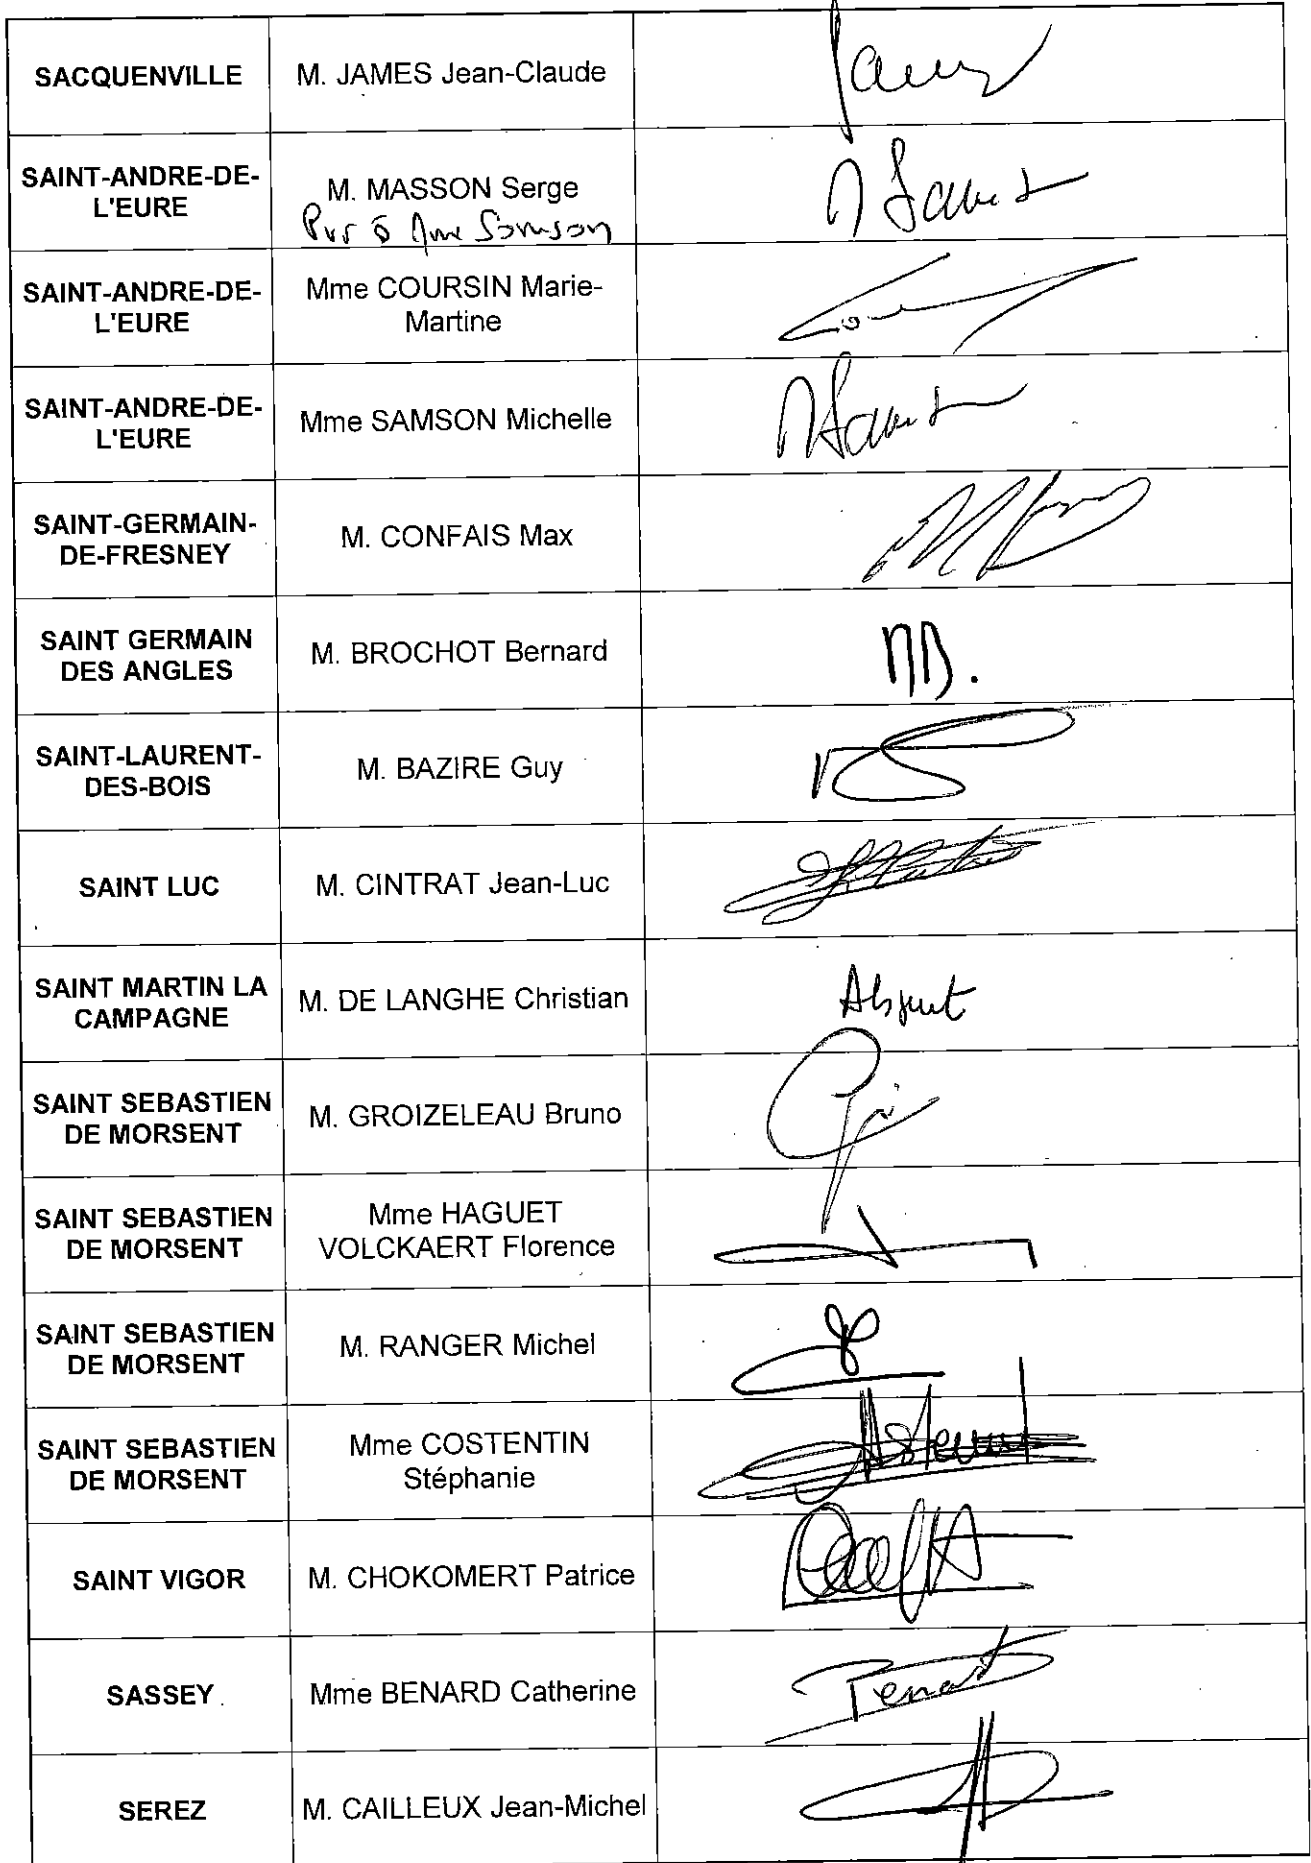 SACQUENVILLE
M. JAMES Jean-Claude
SAINT-ANDRE-DE-
L'EURE
M. MASSON Serge
Samson
SAINT-ANDRE-DE-
L'EURE
Mme COURSIN Marie-
Martine
SAINT-ANDRE-DE-
L'EURE
Mme SAMSON Michelle
SAINT-GERMAIN-
DE-FRESNEY
M. CONFAIS Max
SAINT GERMAIN
DES ANGLES
M. BROCHOT Bernard
SAINT-LAURENT-
DES-BOIS
M. BAZIRE Guy
SAINT LUC
M. CINTRAT Jean-Luc
SAINT MARTIN LA
CAMPAGNE
M. DE LANGHE Christian
Absent
SAINT SEBASTIEN
DE MORSENT
M. GROIZELEAU Bruno
SAINT SEBASTIEN
DE MORSENT
Mme HAGUET
VOLCKAERT Florence
SAINT SEBASTIEN
DE MORSENT
M. RANGER Michel
SAINT SEBASTIEN
DE MORSENT
Mme COSTENTIN
Stéphanie
SAINT VIGOR
M. CHOKOMERT Patrice
SASSEY
Mme BENARD Catherine
SEREZ
M. CAILLEUX Jean-Michel